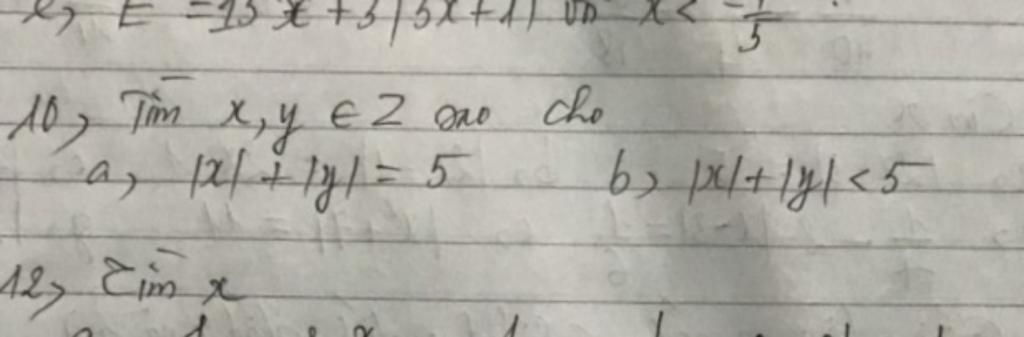 E = 15x + 3|5x+1| x < -1/5
10, Tìm x, y ∈ Z sao cho
a, |x| + |y| = 5 b, |x| + |y| < 5
12, Tìm x